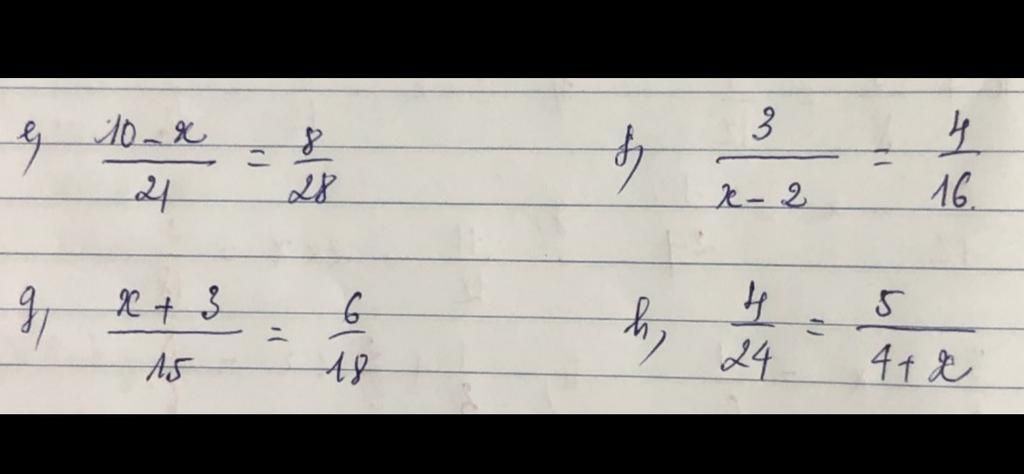 e, (10-x)/21 = 8/28
f, 3/(x-2) = 4/16.
g, (x+3)/15 = 6/18
h, 4/24 = 5/(4+x)